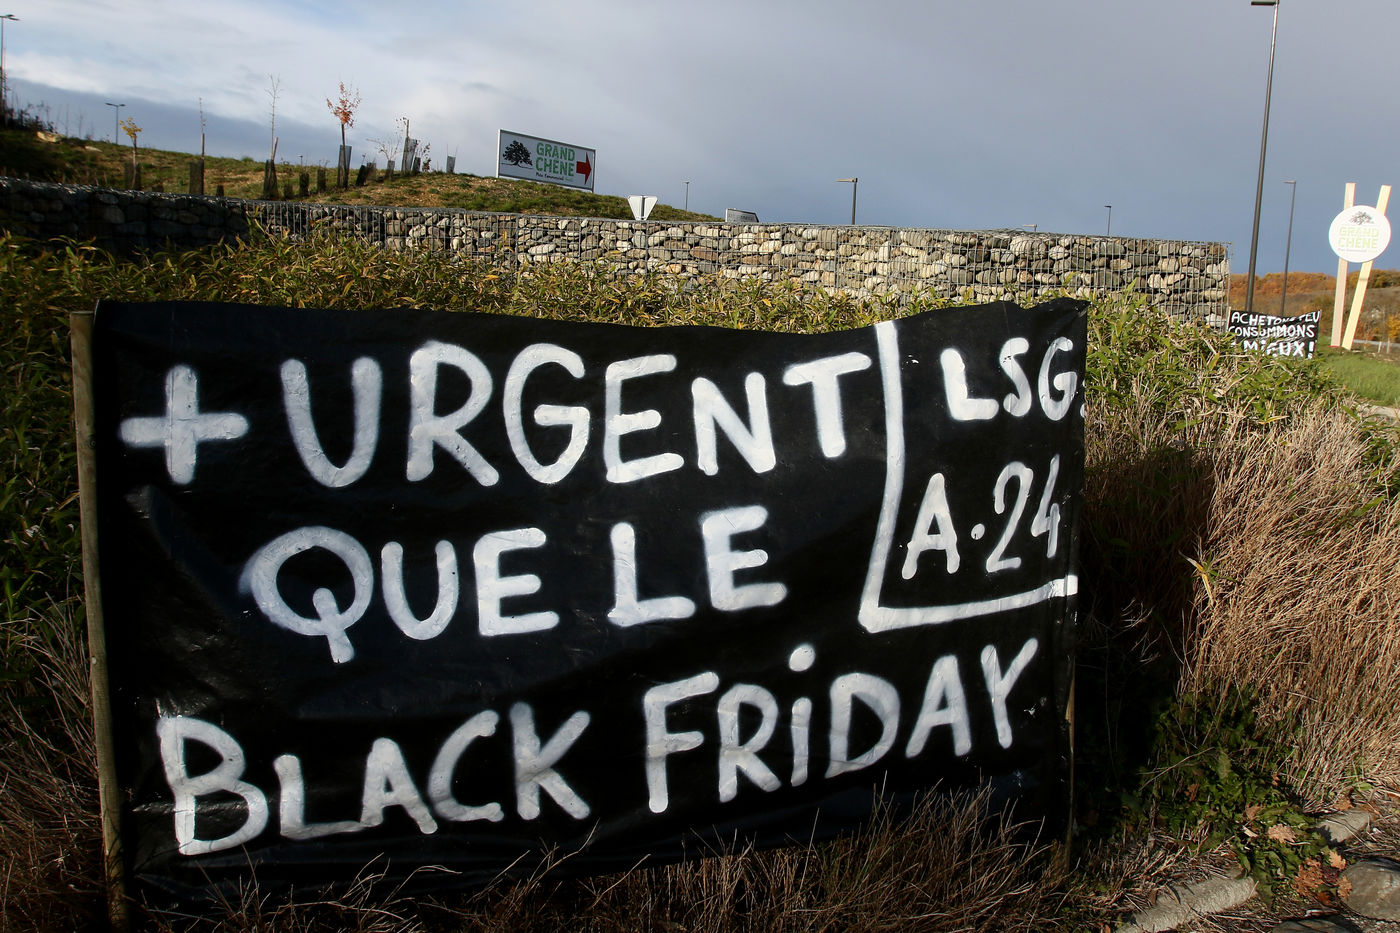 GRAND
CHÊNE
Parc Commercial
GRAND
CHÊNE
ACHETONS PEU
CONSOMMONS
MIEUX!
+ URGENT
QUE LE
BLACK FRiDAY
LSG.
A.24